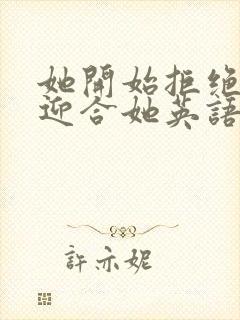 她開始拒绝
迎合她英語
許亦妮